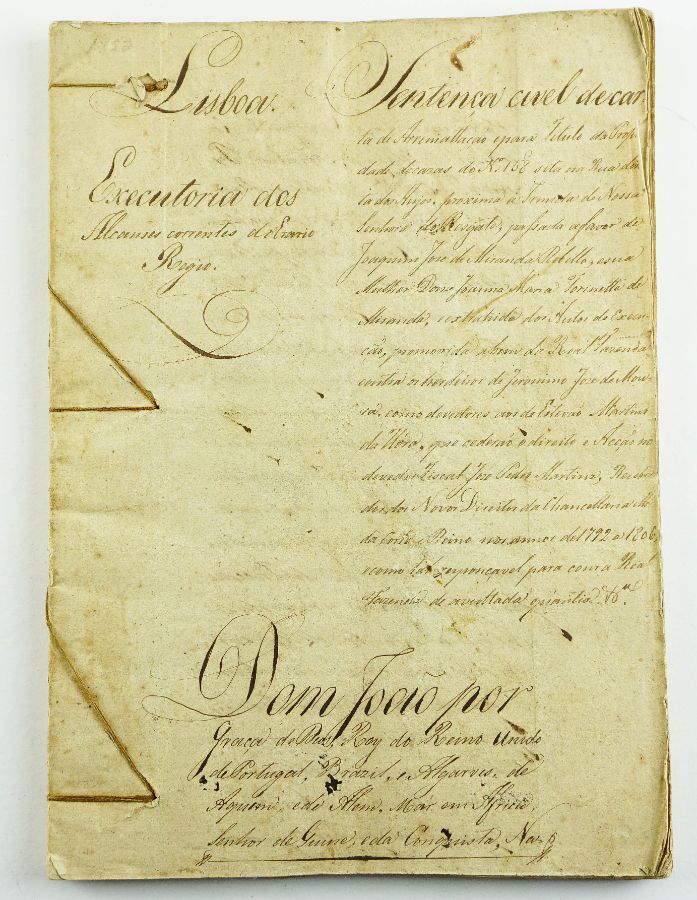 Lisboa.
Executoria dos
Alcances correntes do Erario
Regio.
Sentença civel de car-
ta de Arrematação epara Titulo da Prop
dade de cazas do Nº. 158 sita na Rua dir
ta dos Anjos, proxima á Ermida de Nossa
Senhora do Resgate, passada afavor de
Joaquim José de Miranda Rebello, esua
Mulher Dona Joanna Maria de
Miranda, extrahida dos Autos de Execu-
ção, promovida abem da Real Fazenda
contra os herdeiros de Jeronimo José de Mou
ra, como devedores aos de Estevão Martins
da que cederão o direito e Acção no
devedor Fiscal José Pedro Martins,
dor dos Novos Direitos da Chancellaria
da Corte e Reino nos annos de 1792 a 1806
ecomo tal responçavel para coma Real
Fazenda de avultada quantia
Dom João por
Graça de Deos, Rey do Reino Unido
de Portugal, Brazil, e Algarves, de
Aquem, ede Alem, Mar em Africa,
Senhor de Guine, eda Conquista, Na